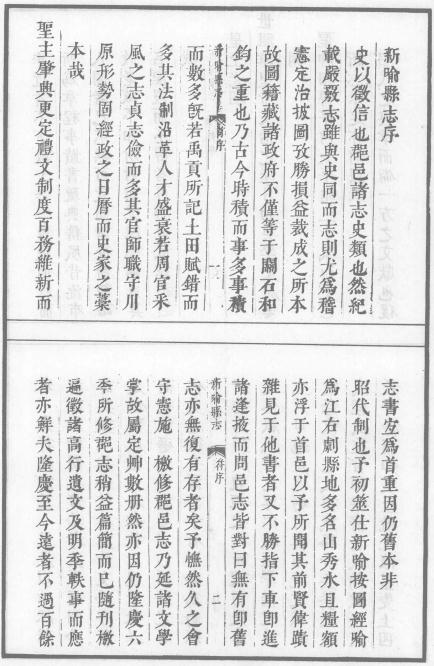 新喻縣志序
史以徵信也郡邑諸志史類也然紀
載嚴覈志雖與史同而志則尤為稽
憲定治披圖攷勝損益裁成之所本
故圖籍藏諸政府不僅等于關石和
鈞之重也乃古今時積而事多事積
新喻縣志
序
一
而數多旣若禹貢所記土田賦錯而
多其法制沿革人才盛衰若周官采
風之志貞志儉而多其官師職守川
原形勢固經政之日曆而史家之藁
本哉
聖主肇興更定禮文制度百務維新而
志書定為首重因仍舊本非
昭代制也予初筮仕新喻按圖經喻
為江右劇縣地多名山秀水且糧額
亦浮于首邑以予所聞其前賢偉蹟
雜見于他書者又不勝指下車卽進
諸逢掖而問邑志皆對曰無有卽舊
新喻縣志
符序
二
志亦無復有存者矣予憮然久之會
守憲施 檄修郡邑志乃延諸文學
掌故屬定艸數册然亦因仍隆慶六
季所修郡志稍益篇簡而巳隨刊檄
遍徵諸高行遺文及明季軼事而應
者亦鮮夫隆慶至今遠者不過百餘